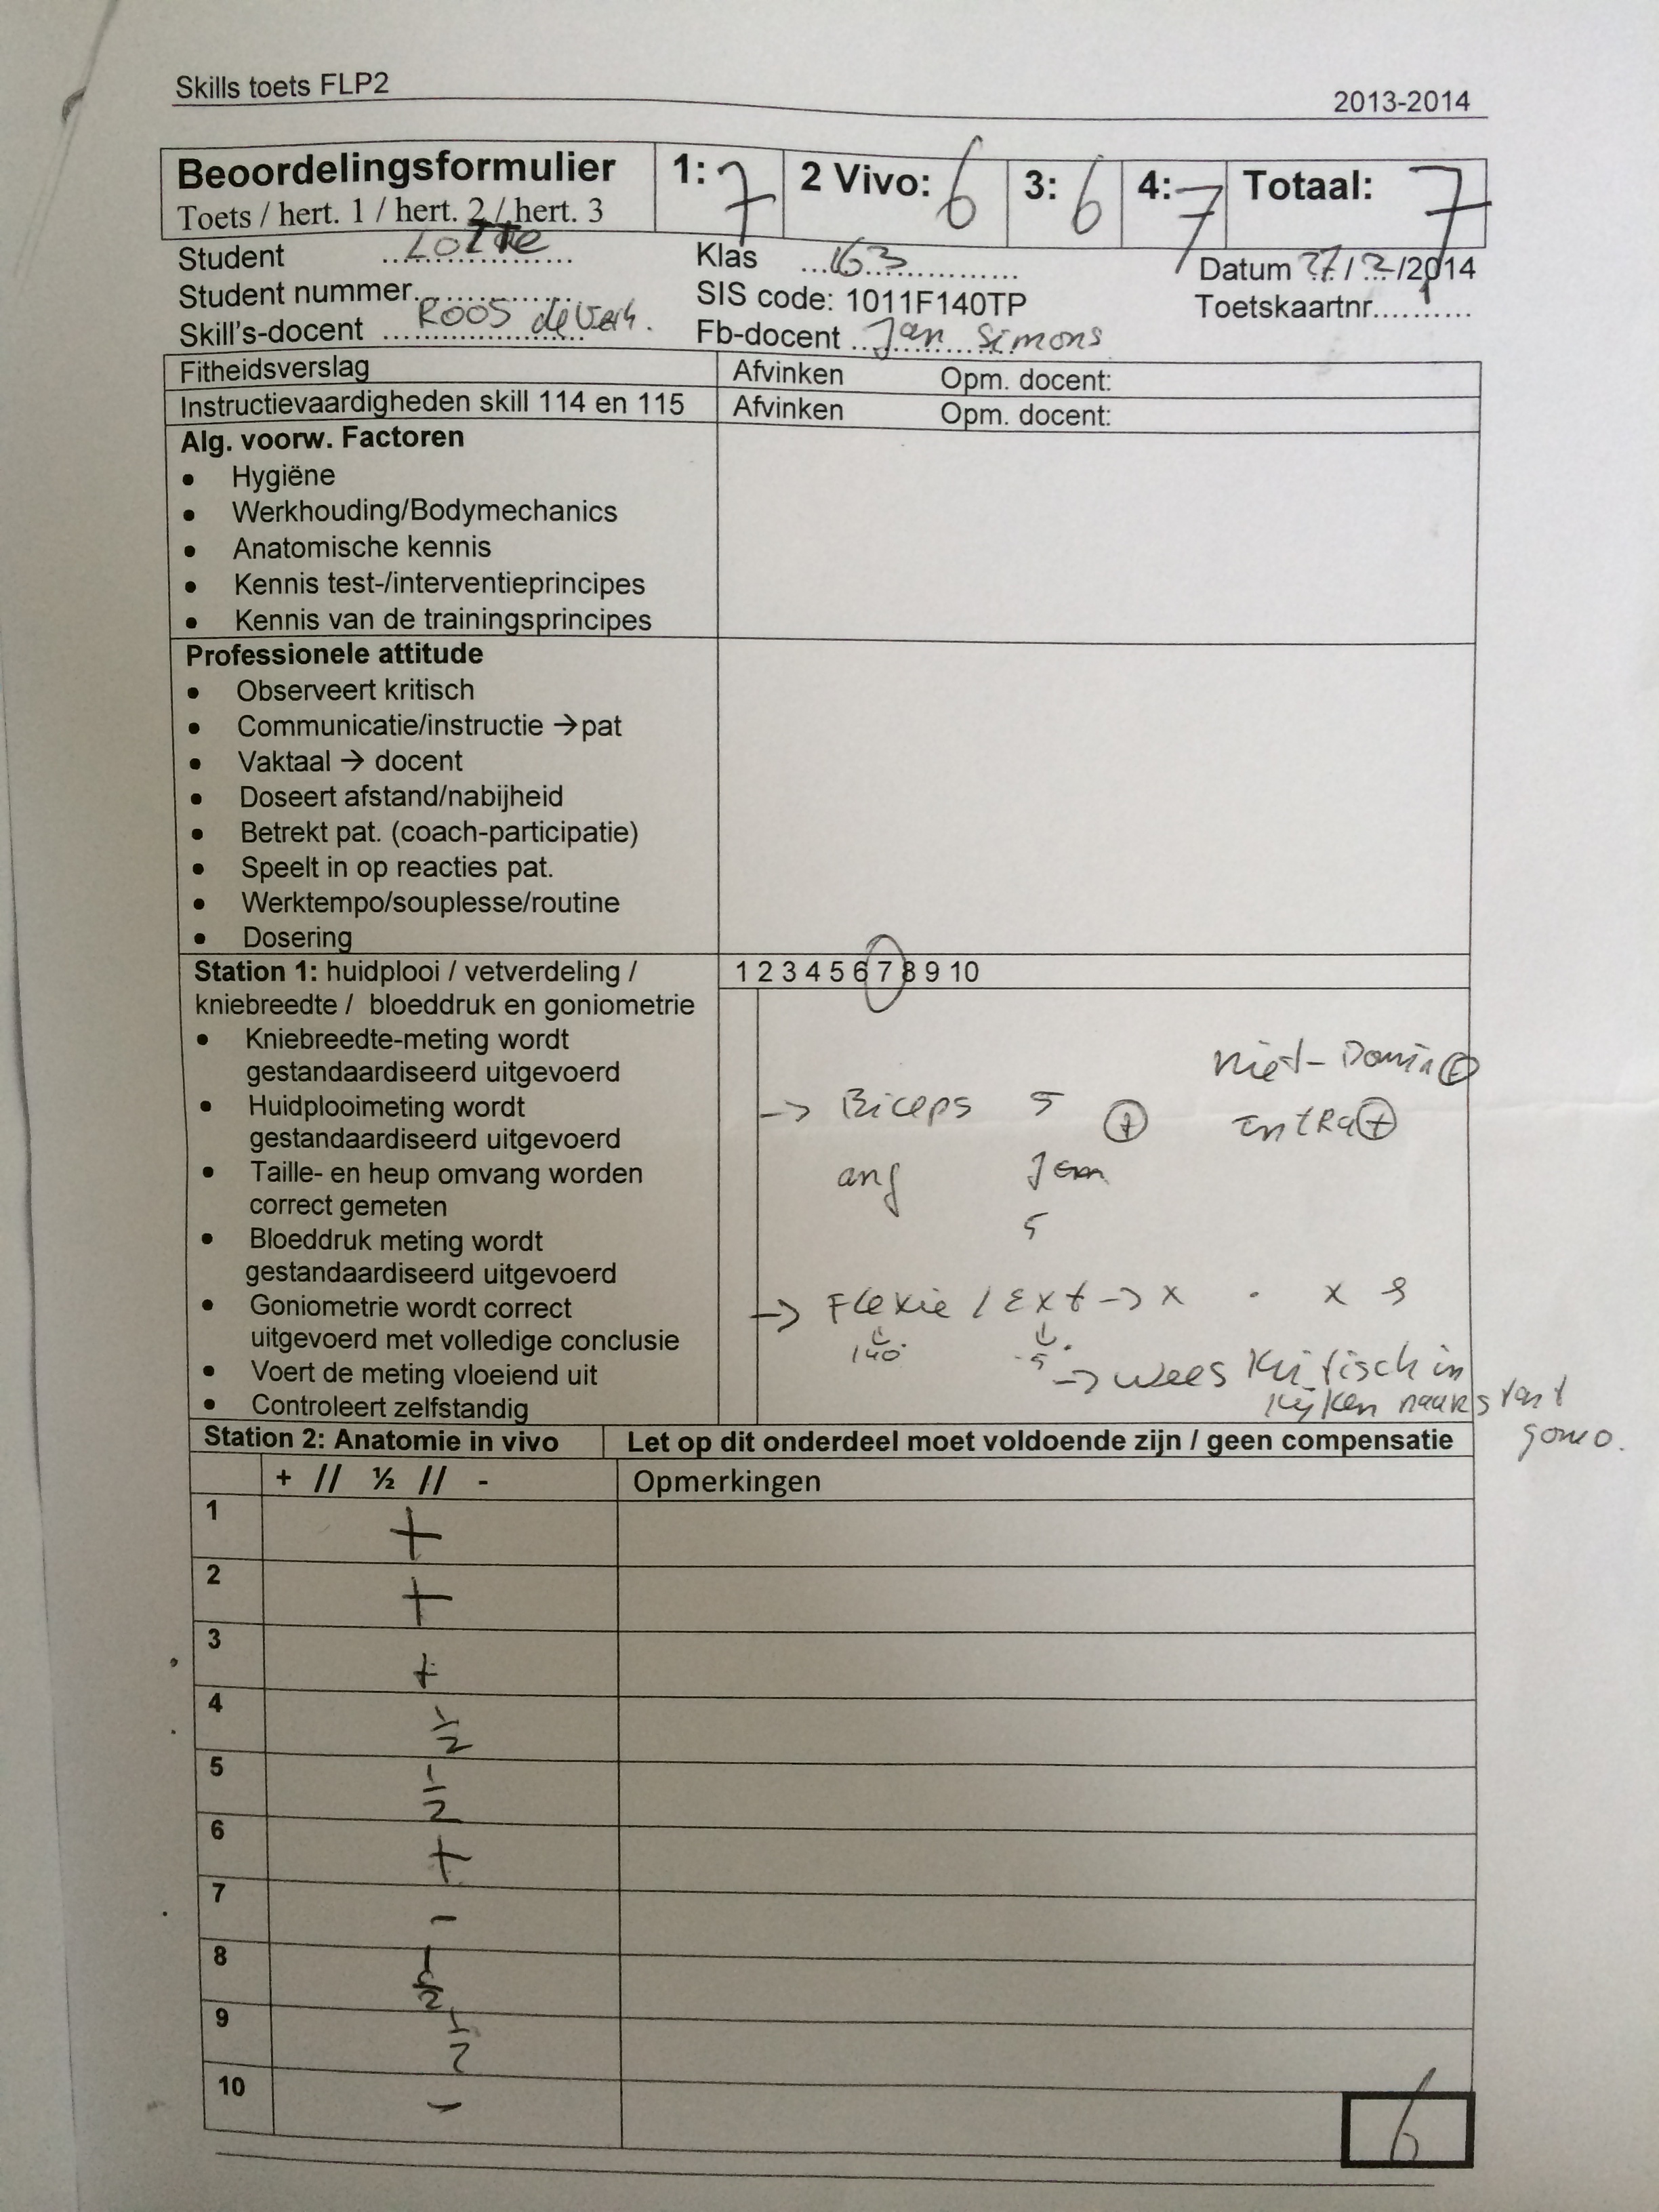 Skills toets FLP2 2013-2014
Beoordelingsformulier 1: 7 2 Vivo: 6 3: 6 4: 7 Totaal: 7
Toets / hert. 1 / hert. 2 / hert. 3
Student Lotte Klas 163 Datum 27/ /2014
Student nummer SIS code: 1011F140TP Toetskaartnr. 1
Skill's-docent Roos de Fb-docent Jan Simons
Fitheidsverslag Afvinken Opm. docent:
Instructievaardigheden skill 114 en 115 Afvinken Opm. docent:
Alg. voorw. Factoren
• Hygiëne
• Werkhouding/Bodymechanics
• Anatomische kennis
• Kennis test-/interventieprincipes
• Kennis van de trainingsprincipes
Professionele attitude
• Observeert kritisch
• Communicatie/instructie →pat
• Vaktaal → docent
• Doseert afstand/nabijheid
• Betrekt pat. (coach-participatie)
• Speelt in op reacties pat.
• Werktempo/souplesse/routine
• Dosering
Station 1: huidplooi / vetverdeling / 1 2 3 4 5 6 7 8 9 10
kniebreedte / bloeddruk en goniometrie
• Kniebreedte-meting wordt
gestandaardiseerd uitgevoerd niet-Domin
• Huidplooimeting wordt
gestandaardiseerd uitgevoerd → Biceps 5 + intra +
• Taille- en heup omvang worden
correct gemeten
5
• Bloeddruk meting wordt
gestandaardiseerd uitgevoerd
• Goniometrie wordt correct → Flexie / Ext → x . x
uitgevoerd met volledige conclusie ↓ 140° ↓ -5°
• Voert de meting vloeiend uit → wees kritisch in
• Controleert zelfstandig kijken naar stant
gonio.
Station 2: Anatomie in vivo Let op dit onderdeel moet voldoende zijn / geen compensatie
+ // ½ // - Opmerkingen
1 +
2 +
3 +
4 ½
5 ½
6 +
7 -
8 ½
9 ½
10 -
6